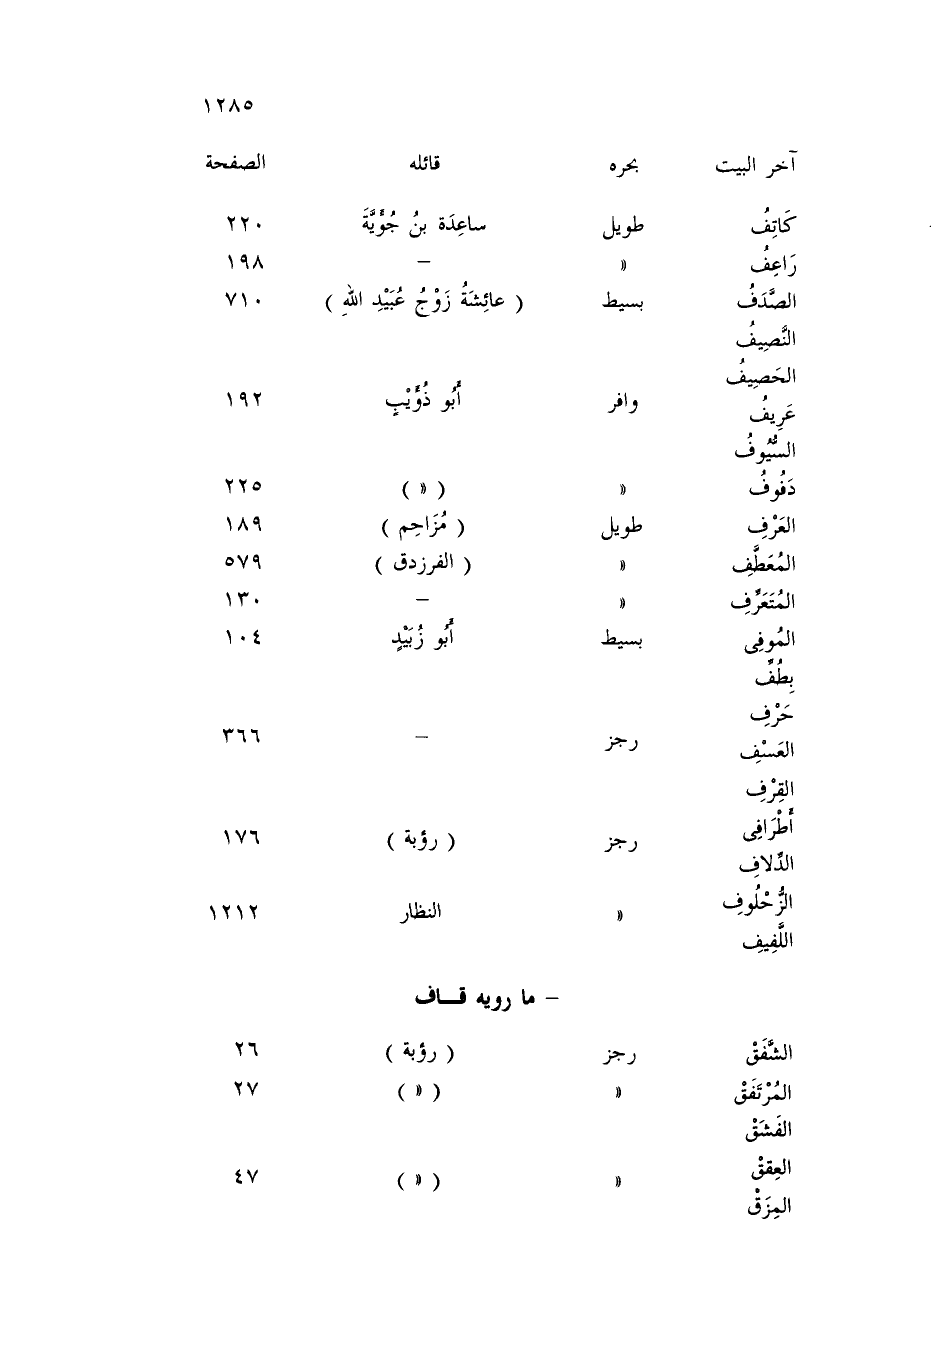 ١٢٨٥
آخر البيت بحره قائله الصفحة
كَاتِفُ طويل ساعِدَة بنُ جُؤَيَّةَ ٢٢٠
رَاعِفُ » – ١٩٨
الصَّدَفُ بسيط ( عائِشَةُ زَوْجُ عُبَيْدِ اللهِ ) ٧١٠
النَّصِيفُ
الحَصِيفُ
وافر أَبُو ذُؤَيْبٍ ١٩٢
عَرِيفُ
السُّيُوفُ
دَفُوفُ » ( » ) ٢٢٥
العَرْفِ طويل ( مُزَاحِم ) ١٨٩
المُعَطَّفِ » ( الفرزدق ) ٥٧٩
المُتَعَرِّفِ » – ١٣٠
المُوفِى بسيط أَبُو زُبَيْدٍ ١٠٤
بِطُفِّ
حَرْفِ
رجز – ٣٦٦
العَسْفِ
القِرْفِ
أَطْرَافِى
رجز ( رؤبة ) ١٧٦
الدِّلافِ
الزُّحْلُوفِ
» النظار ١٢١٢
اللَّفِيفِ
– ما رويه قـــاف
الشَّفَقْ رجز ( رؤبة ) ٢٦
المُرْتَفَقْ » ( » ) ٢٧
الفَشَقْ
العِقَقْ
» ( » ) ٤٧
المِزَقْ